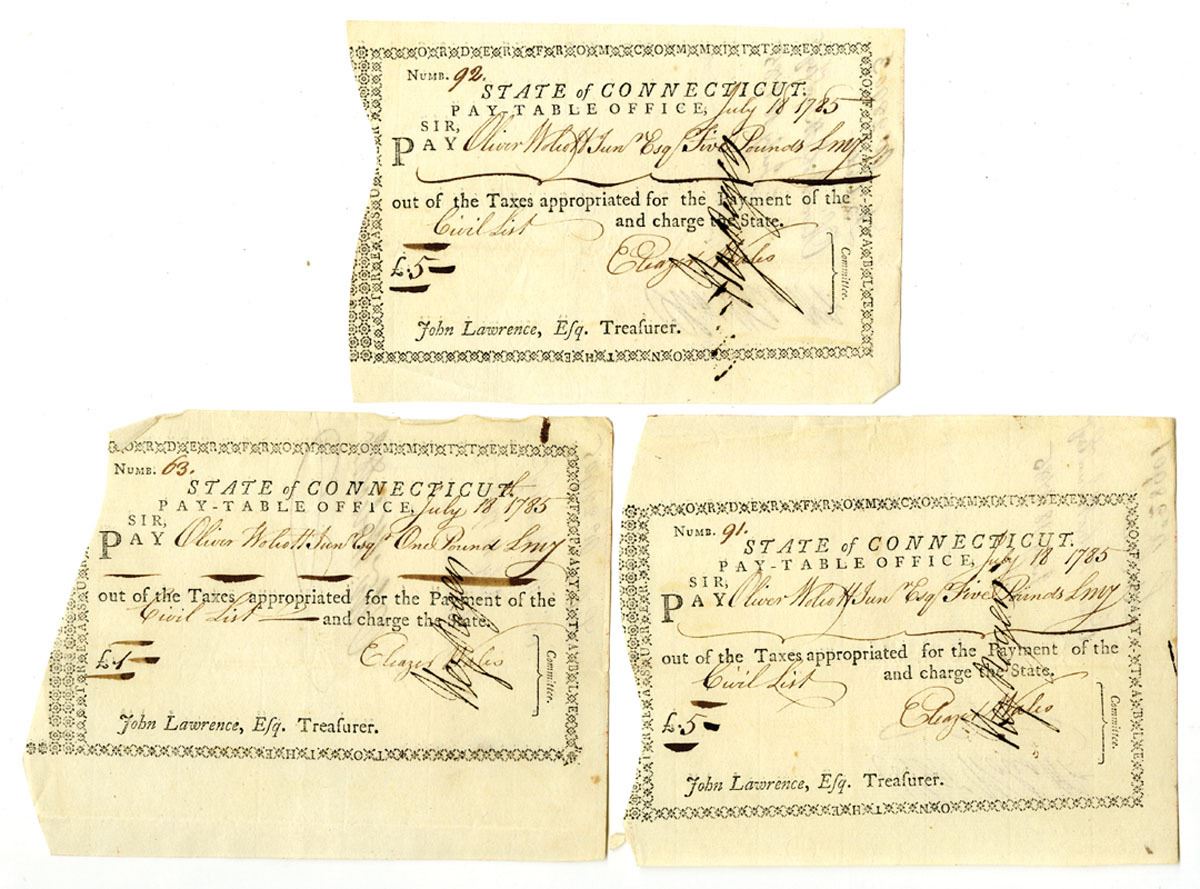 ORDER FROM COMMITTEE
OF PAY-TABLE
ON THE
TREASU
NUMB. 92.
STATE of CONNECTICUT.
PAY-TABLE OFFICE, July 18 1785
SIR,
PAY Oliver Wolcott Junr Esqr Five Pounds Lmy
out of the Taxes appropriated for the Payment of the
Civil List and charge the State.
£.5
Eleazer Wales
Committee.
John Lawrence, Eſq. Treaſurer.
ORDER FROM COMMITTEE
OF PAY-TABLE
TO THE
TREASU
NUMB. 63.
STATE of CONNECTICUT.
PAY-TABLE OFFICE, July 18th 1785
SIR,
PAY Oliver Wolcott Junr Esqr One Pound Lmy
out of the Taxes appropriated for the Payment of the
Civil List and charge the State.
£.1
Eleazer Wales
Committee.
John Lawrence, Eſq. Treaſurer.
ORDER FROM COMMITTEE
OF PAY-TABLE
ON THE
TREASURE
NUMB. 91.
STATE of CONNECTICUT.
PAY-TABLE OFFICE, July 18 1785
SIR,
PAY Oliver Wolcott Junr Esqr Five Pounds Lmy
out of the Taxes appropriated for the Payment of the
Civil List and charge the State.
£.5
Eleazer Wales
Committee.
John Lawrence, Eſq. Treaſurer.